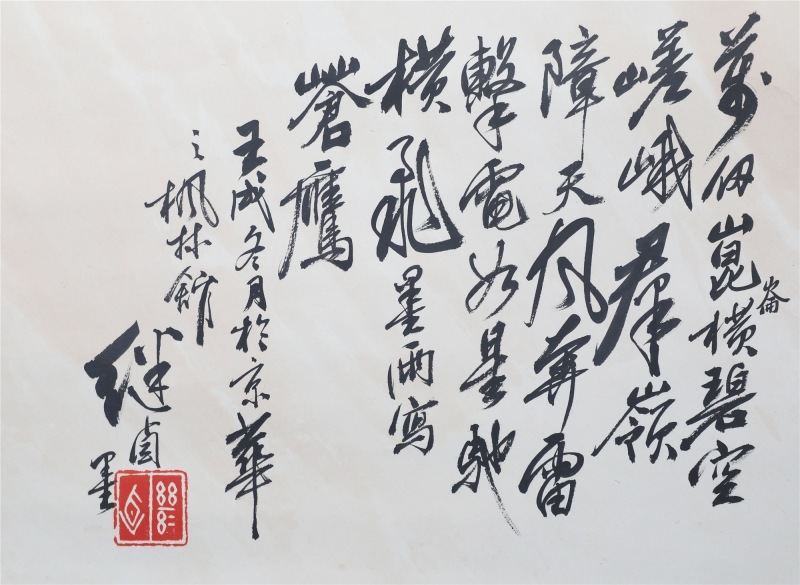 萬仞崑崙橫碧空
嵯峨群嶺
障天風奔雷
擊電如星馳
橫飛墨雨寫
蒼鷹
壬戌冬月於京華
之楓林館
繼卣
墨